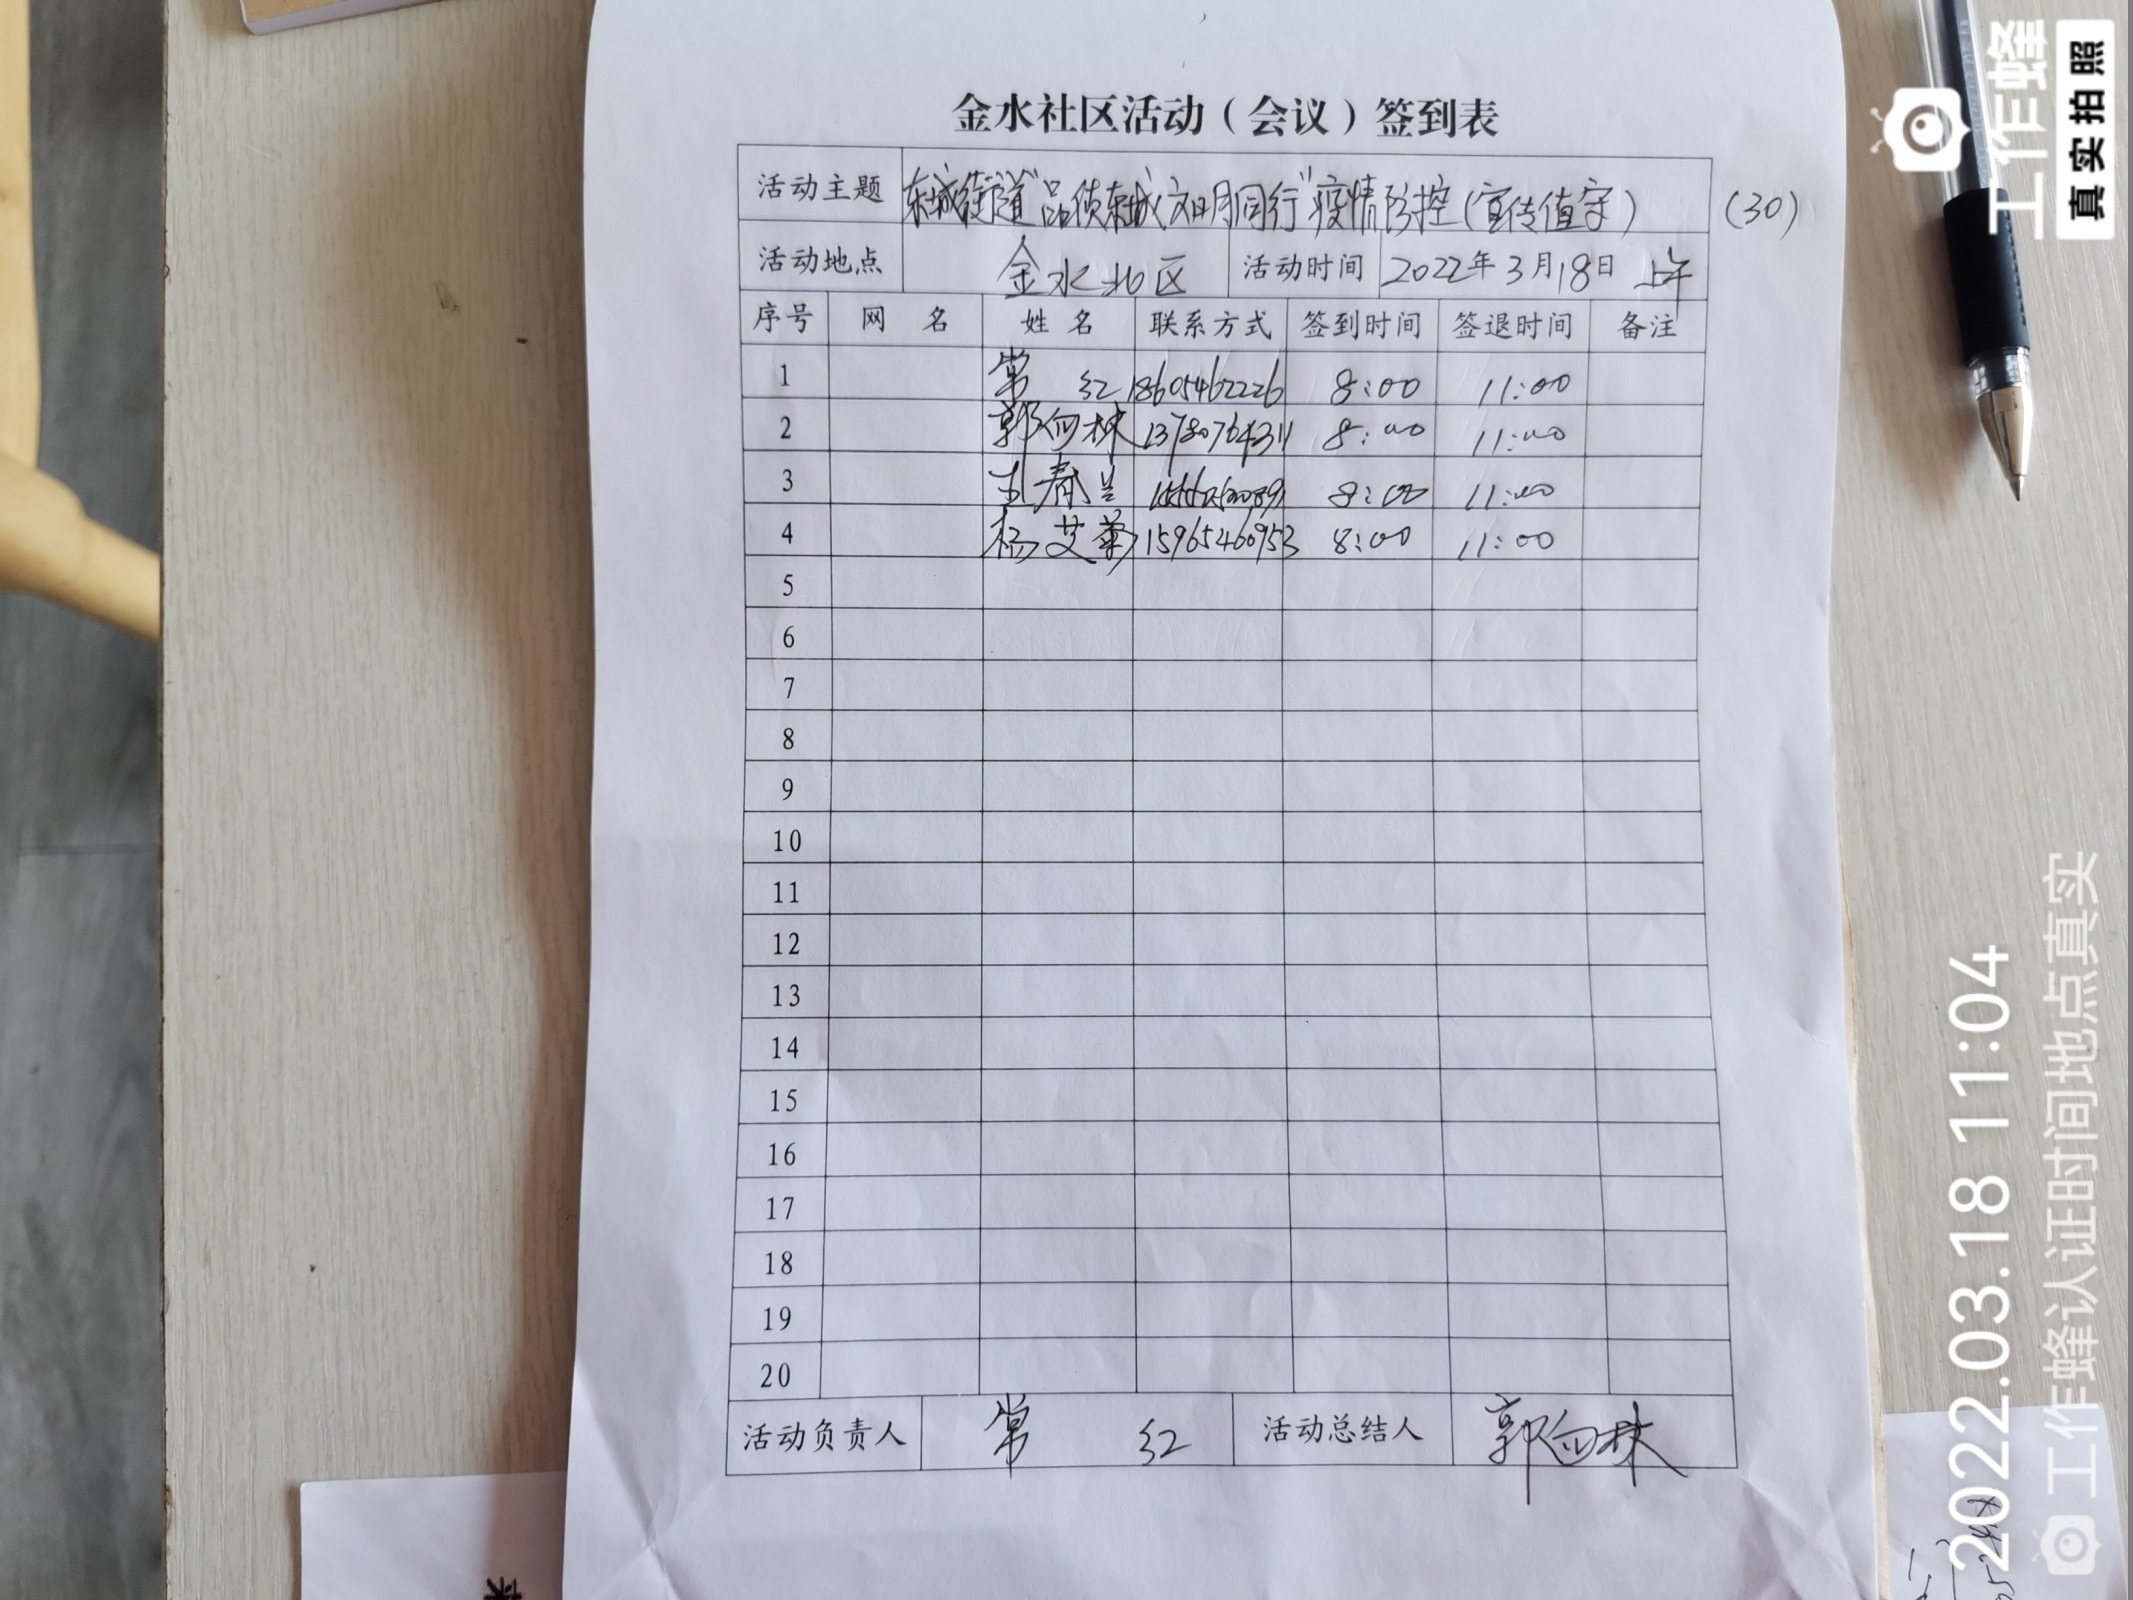 金水社区活动（会议）签到表
活动主题 东城街道"品质东城 文明同行"疫情防控(宣传值守) (30)
活动地点 金水北区 活动时间 2022年3月18日 上午
序号 网 名 姓 名 联系方式 签到时间 签退时间 备注
1 常 红 18605462226 8:00 11:00
2 郭向林 13780764311 8:00 11:00
3 王春兰 8:00 11:00
4 杨艾菊 15965460953 8:00 11:00
5
6
7
8
9
10
11
12
13
14
15
16
17
18
19
20
活动负责人 常 红 活动总结人 郭向林
工作蜂
真实拍照
2022.03.18 11:04
工作蜂认证时间地点真实